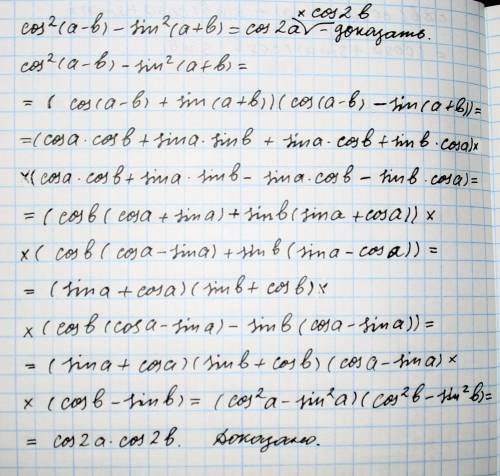 × cos2b
cos²(a-b) - sin²(a+b) = cos2a√ - доказать.
cos²(a-b) - sin²(a+b) =
= ( cos(a-b) + sin(a+b))(cos(a-b) - sin(a+b)) =
= (cosa·cosb + sina·sinb + sina·cosb + sinb·cosa)×
×(cosa·cosb + sina·sinb - sina·cosb - sinb·cosa) =
= (cosb(cosa + sina) + sinb(sina + cosa)) ×
× (cosb(cosa - sina) + sinb(sina - cosa)) =
= (sina + cosa)(sinb + cosb)×
× (cosb(cosa - sina) - sinb(cosa - sina)) =
= (sina + cosa)(sinb + cosb)(cosa - sina) ×
× (cosb - sinb) = (cos²a - sin²a)(cos²b - sin²b) =
= cos2a·cos2b. Доказано.